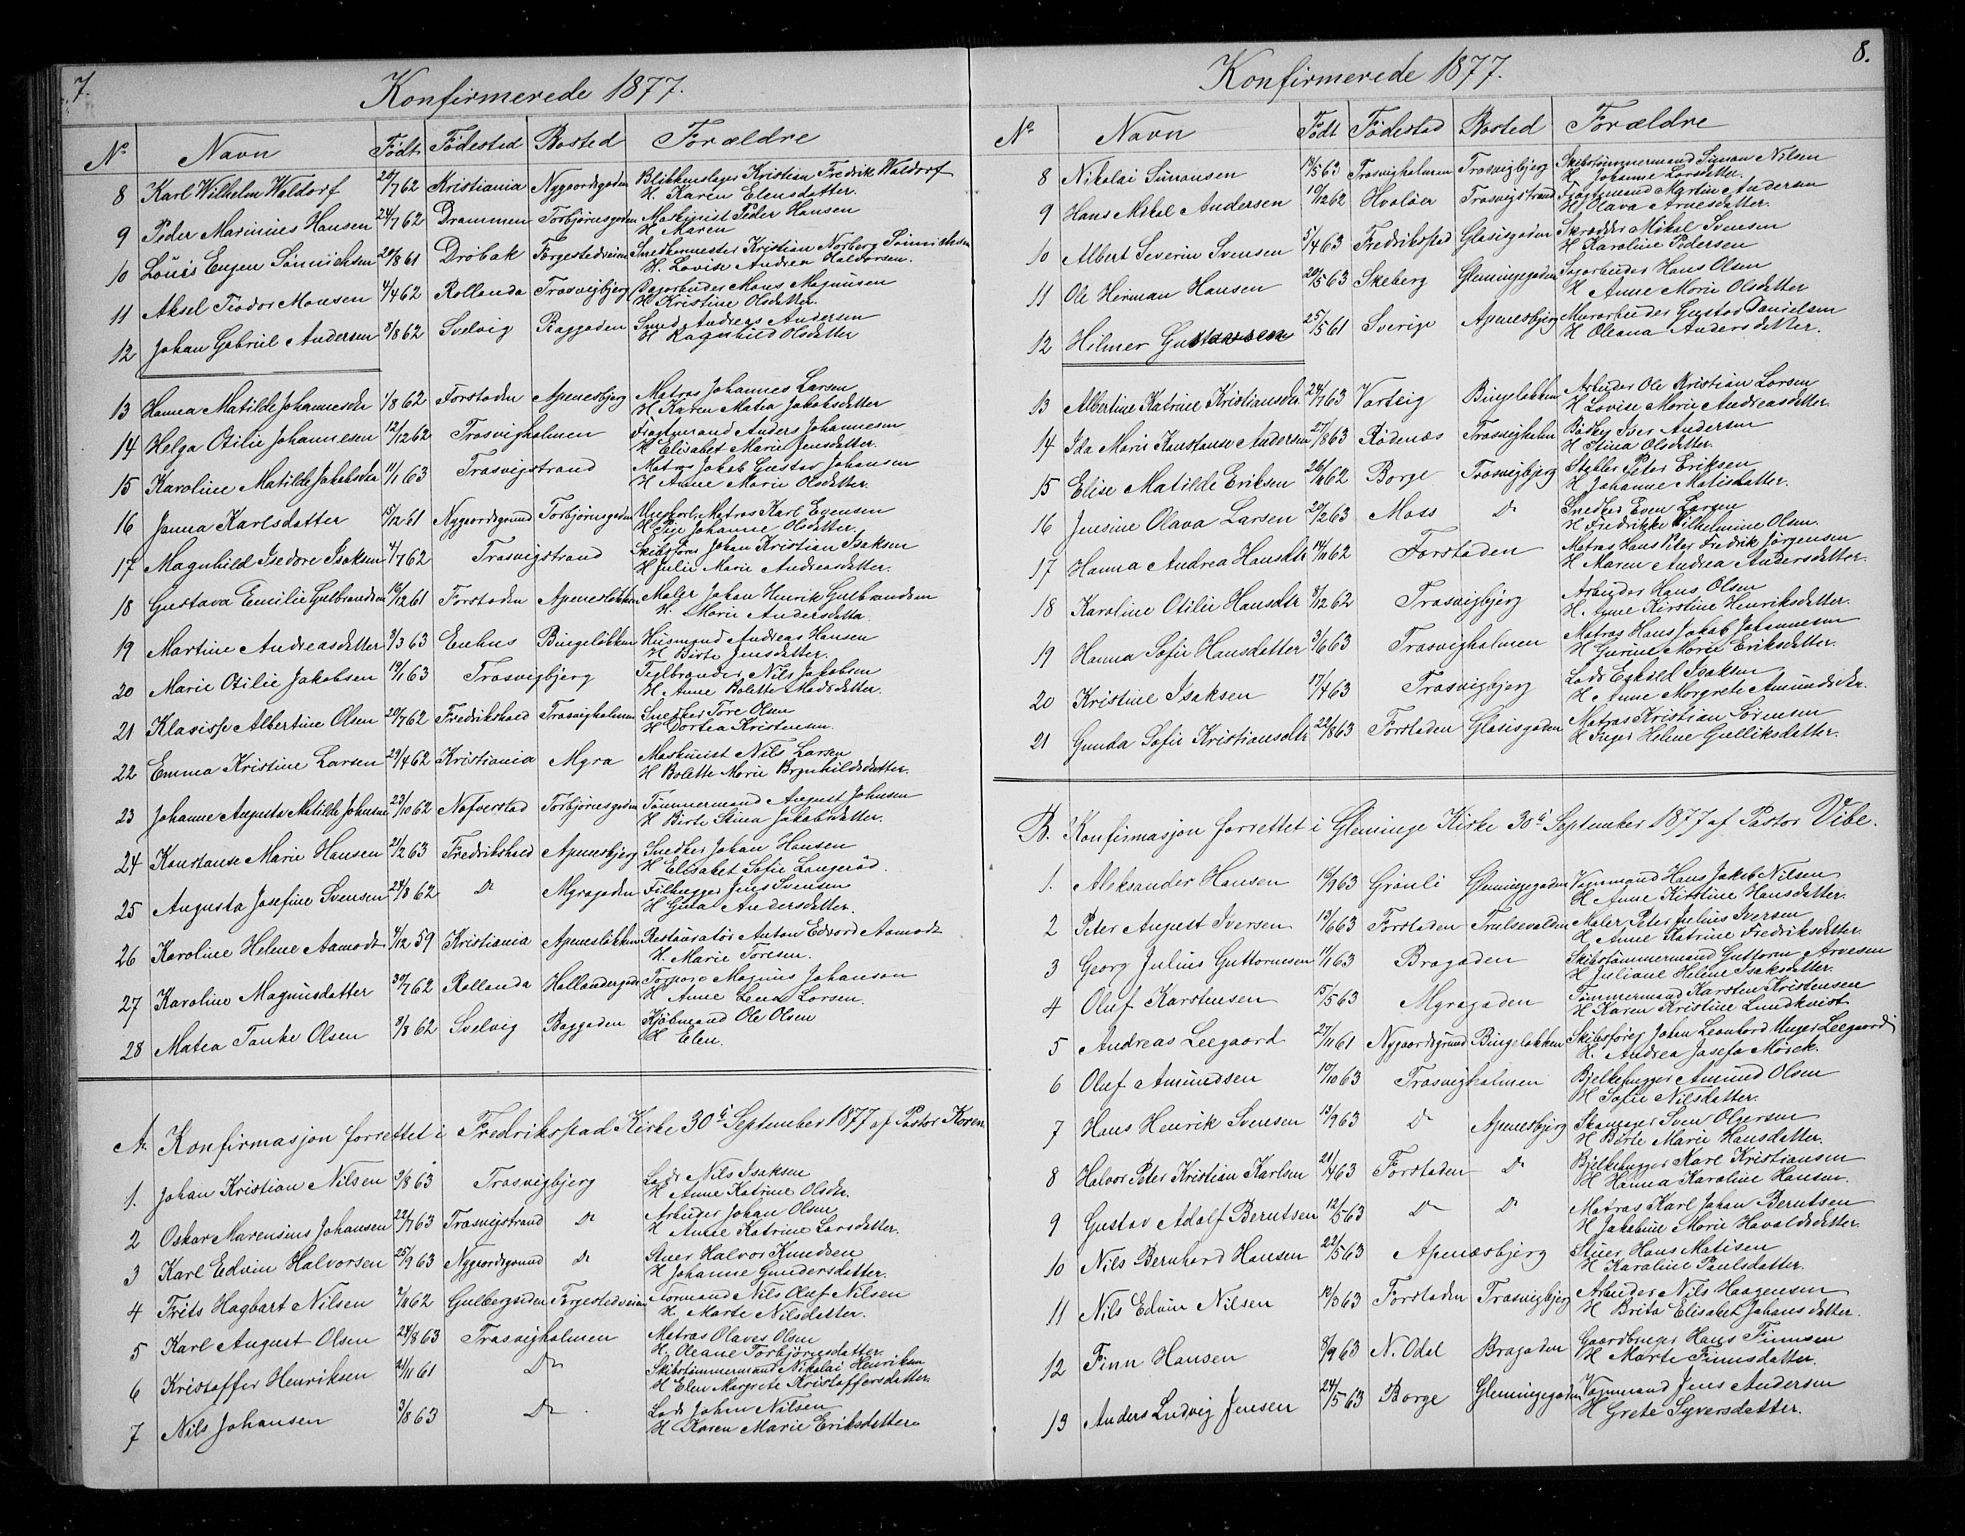 7.
Konfirmerede 1877.
No Navn Født Fødested Bosted Forældre
8 Karl Wilhelm Waldorf 20/7 62 Kristiania Nygaardsgaden Blikkenslager Kristian Fredrik Waldorf
H. Karen Elensdatter.
9 Peder Marinius Hansen 24/7 62 Drammen Torbjørnsgaden Maskinist Peder Hansen
H Maren
10 Louis Eugen Sønnichsen 20/8 61 Drøbak Forgestedveien Snedkermester Kristian Norberg Sønnichsen
H. Lovise Andrea Haldorsen.
11 Aksel Teodor Monsen 4/4 62 Rollanda Trosvigbjerg Sagarbeider Mons Magnusen
H Kristine Olsdatter.
12 Johan Gabriel Andersen 8/8 62 Svelvig Baggaden Smed Andreas Andersen
H Ragnhild Olsdatter
13 Hanna Matilde Johannesdtr 1/8 62 Forstaden Apenesbjerg Matros Johannes Larsen
H Karen Matea Jakobsdatter
14 Helga Otilie Johannesen 12/12 62 Trosvigholmen Fragtmand Anders Johannesen
H Elisabet Marie Jensdatter.
15 Karoline Matilde Jakobsen 11/1 63 Trosvigstrand Matros Jakob Gustav Johansen
H. Anne Marie Olsdatter.
16 Janna Karlsdatter 15/12 61 Nygaardsgrund Torbjørnsgaden Ungkarl, Matros Karl Evensen
H Pige Johanne Olsdatter.
17 Magnhild Isedore Isaksen 4/7 62 Trosvigstrand Skibsfører Johan Kristian Isaksen
H Julie Marie Andreasdatter.
18 Gustava Emilie Gulbrandsen 10/12 61 Forstaden Apenesløkken Maler Johan Henrik Gulbrandsen
H. Marie Andersdatter.
19 Martine Andreasdatter 3/3 63 Enhus Bingeløkken Husmand Andreas Hansen
H Birte Jensdatter.
20 Marie Otilie Jakobsen 19/1 63 Trosvigbjerg Teglbrænder Nils Jakobsen
H Anne Bolette Madsdatter.
21 Klavisse Albertine Olsen 20/7 62 Fredrikshald Trosvigholmen Snedker Tore Olsen
H Dortea Kristensen.
22 Emma Kristine Larsen 29/4 62 Kristiania Myra Maskinist Nils Larsen
H Bolette Marie Brynhildsdatter.
23 Johanne Augusta Matilde Johnsen 23/10 62 Nafverstad Torbjørnsgaden Tømmermand August Johnsen
H Birte Stina Jakobsdatter.
24 Konstanse Marie Hansen 21/2 63 Fredrikshald Apenesbjerg Snedker Johan Hansen
H Elisabet Sofie Langerød.
25 Augusta Josefine Svensen 24/8 62 Do Myragaden Filhugger Jens Svensen
H Gina Andersdatter.
26 Karoline Helene Aamodt 4/12 59 Kristiania Apenesløkken Restauratør Anton Edvard Aamodt
H. Marie Toresen.
27 Karoline Magnusdatter 30/7 62 Rollanda Hollendergaden Magnus Johanson
H Anne Lena Larsen.
28 Matea Tanke Olsen 8/8 62 Svelvig Baggaden Kjøbmand Ole Olsen
H Elen.
A. Konfirmasjon forrettet i Fredrikstad Kirke 30te September 1877 af Pastor Koren
1. Johan Kristian Nilsen 9/8 63 Trosvigbjerg Lods Nils Isaksen
H Anne Katrine Olsdtr.
2 Oskar Marensius Johansen 22/7 63 Trosvigstrand Do Arbeider Johan Olsen
H Anne Katrine Larsdatter.
3 Karl Edvin Halvorsen 25/9 63 Nygaardsgrund Do Stuer Halvor Knudsen
H Johanne Gundersdatter.
4 Frits Hagbart Nilsen 7/11 62 Gulbergsiden Forgestedveien Formand Nils Oluf Nilsen
H. Marte Nilsdatter.
5 Karl August Olsen 24/8 63 Trosvigholmen Matros Olaves Olsen
H. Oleane Torbjørnsdatter.
6 Kristoffer Henriksen 21/11 61 Do Skibstømmermand Nikolai Henriksen
H Elen Margrete Kristoffersdatter.
7 Nils Johansen 3/8 63 Do Lods Johan Nilsen
H Karen Marie Eriksdatter.
8.
Konfirmerede 1877.
No Navn Født Fødested Bosted Forældre
8 Nikolai Simonsen 14/5 63 Trosvigholmen Trosvigbjerg Skibstømmermand Simon Nilsen
H. Johanne Larsdatter.
9 Hans Mikal Andersen 10/12 62 Hvaløer Trosvigstrand Fragtmand Martin Andersen
H Olava Arnesdatter.
10 Albert Severin Svensen 5/4 63 Fredrikstad Glasisgaden Skrædder Mikal Svensen
H Karoline Pedersen
11 Ole Herman Hansen 20/5 63 Skeberg Glemingegaden Sagarbeider Hans Olsen
H Anne Marie Olsdatter
12 Hilmer Gustavsen 25/5 61 Sverige Apenesbjerg Murarbeider Gustav Danielsen
H Oleana Andersdatter.
13 Albertine Katrine Kristiansdtr. 24/7 63 Varteig Bingeløkken Arbeider Ole Kristian Larsen
H Lovise Marie Andreasdatter.
14 Ida Marie Konstanse Andersen 27/8 63 Rødenæs Trosvigholm Bødker Iver Andersen
H Stina Olsdatter.
15 Elise Matilde Eriksen 26/10 62 Borge Trosvigbjerg Stabler Peter Eriksen
H Johanne Matisdatter.
16 Jensine Olava Larsen 20/2 63 Moss Do Snedker Even Larsen
H Fredrikke Vilhelmine Olsen.
17 Hanna Andrea Hansdtr 14/11 62 Forstaden Matros Hans Peter Fredrik Jørgensen
H Maren Andrea Andersdatter.
18 Karoline Otilie Hansdtr 8/12 62 Trosvigbjerg Arbeider Hans Olsen
H. Anne Kirstine Henriksdatter.
19 Hanna Sofie Hansdatter 3/6 63 Trosvigholmen Matros Hans Jakob Johannesen
H Gurine Marie Eriksdatter.
20 Kristine Isaksen 17/4 63 Trosvigbjerg Lods Eskeld Isaksen
H Anne Margrete Amundsdtr.
21 Gunda Sofie Kristiansdtr 22/8 63 Forstaden Glasisgaden Matros Kristian Sørensen
H Inger Helene Gulliksdatter.
B. Konfirmasjon forrettet i Gleminge Kirke 30te September 1877 af Pastor Vibe.
1. Aleksander Hansen 16/9 63 Grønli Glemingegaden Vognmand Hans Jakob Nilsen
H Anne Kirstine Hansdatter.
2 Peter August Iversen 13/6 63 Forstaden Trulsevolden Maler Peter Julius Iversen
H Anne Katrine Fredriksdatter.
3 Georg Julius Guttormsen 11/1 63 Bragaden Skibstømmermand Guttorm Arvesen
H Juliane Helene Isaksdatter.
4 Oluf Karstensen 15/5 63 Myragaden Tømmermand Karsten Kristensen
H Karen Kristine Lundkvist
5 Andreas Leegaard 27/11 61 Nygaardsgrund Bingeløkken Skibsfører Johan Leonhard Unger Leegaard
H. Andrea Josefa Mørck.
6 Oluf Amundsen 19/10 63 Trosvigholmen Bjelkehugger Amund Olsen
H Sofie Nilsdatter.
7 Hans Henrik Svensen 13/9 63 Do Apenesbjerg Skomager Sven Olgersen
H Birte Marie Hansdatter.
8 Halvor Peter Kristian Karlsen 21/4 63 Forstaden Do Bjelkehugger Karl Kristiansen
H Hanna Karoline Hansen.
9 Gustav Adolf Berntsen 12/5 63 Do Do Matros Karl Johan Berntsen
H Jakobine Marie Havoldsdatter.
10 Nils Bernhard Hansen 22/5 63 Apenæsbjerg Stuer Hans Matisen
H Karoline Paulsdatter.
11 Nils Edvin Nilsen 10/3 63 Forstaden Trosvigbjerg Arbeider Nils Haagensen
H Brita Elisabet Johansdatter.
12 Finn Hansen 8/9 63 N. Odal Bragaden Gaardbruger Hans Finnsen
H Marte Finnsdatter.
13 Anders Ludvig Jensen 24/5 63 Borge Glemingegaden Vognmand Jens Andersen
H Grete Syversdatter.